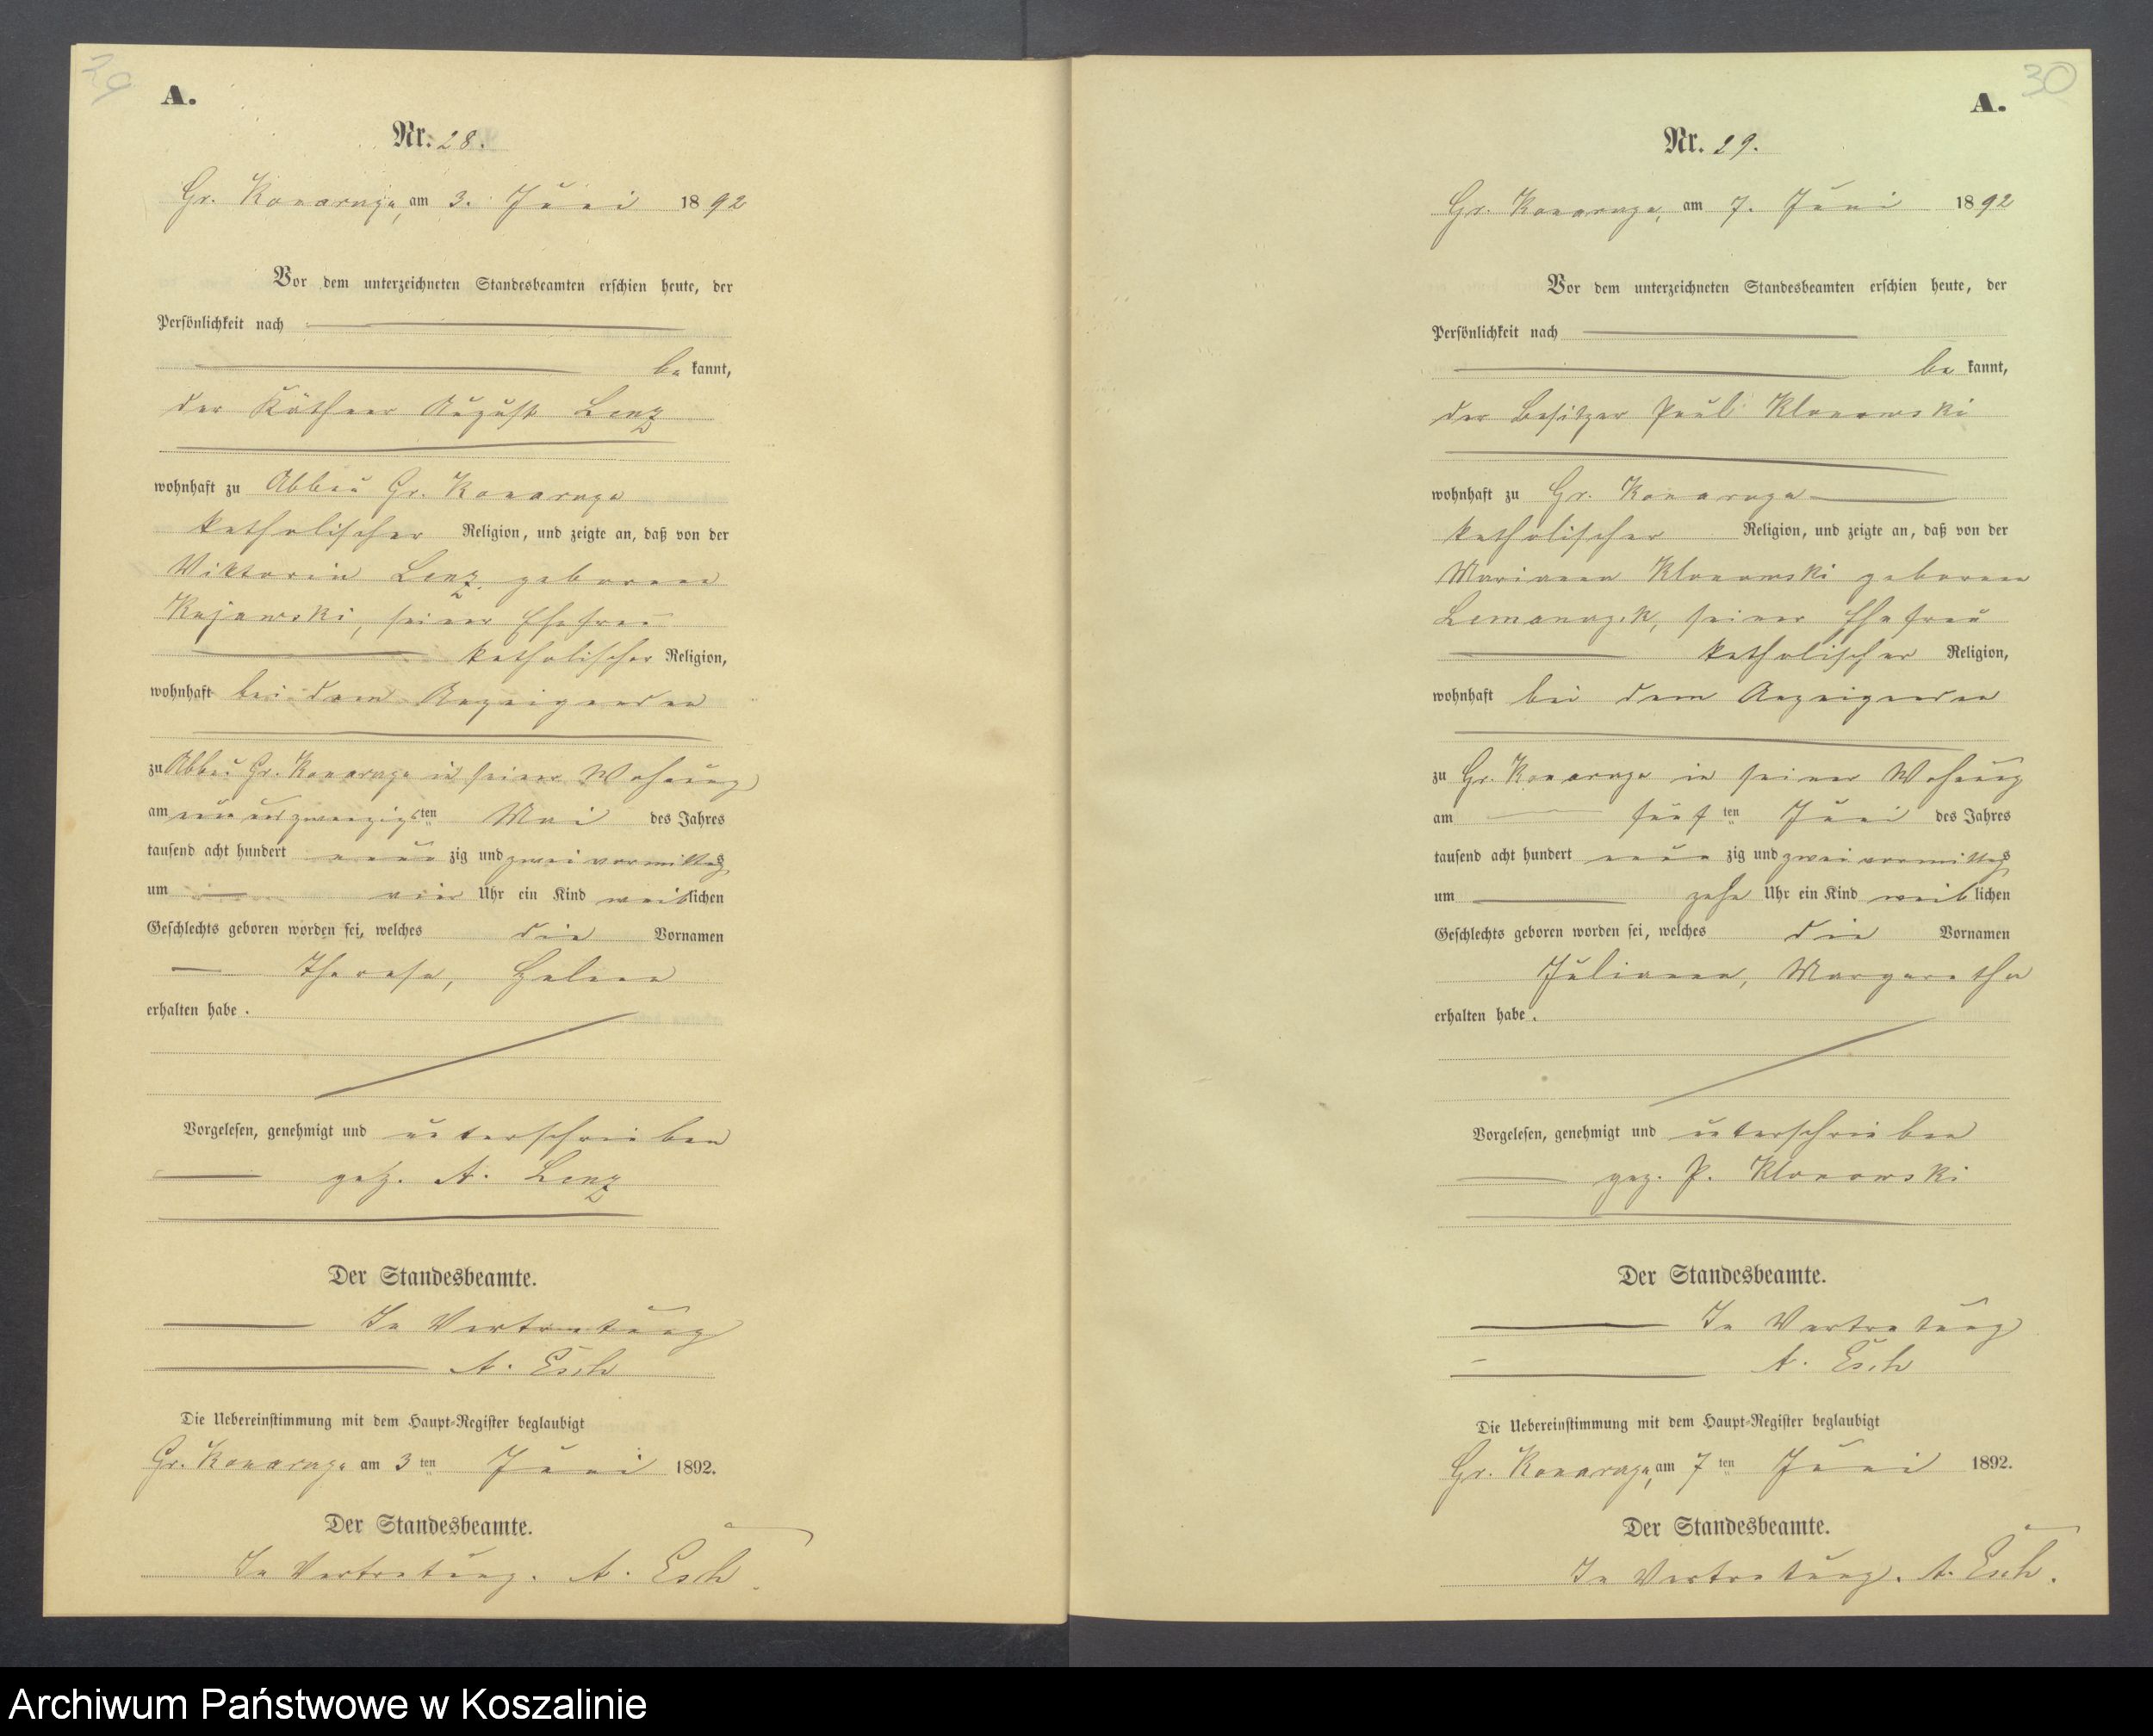 29
A.
Nr. 28.
Gr. Konarzyn, am 3. Juni 1892
Vor dem unterzeichneten Standesbeamten erschien heute, der
Persönlichkeit nach
be kannt,
der Käthner August Lenz
wohnhaft zu Abbau Gr. Konarzyn
katholischer Religion, und zeigte an, daß von der
Viktoria Lenz geborene
Kujawski, seiner Ehefrau
katholischer Religion,
wohnhaft bei dem Anzeigenden
zu Abbau Gr. Konarzyn in seiner Wohnung
am neunundzwanzigsten Mai des Jahres
tausend acht hundert neun zig und zwei vormittags
um ein Uhr ein Kind weiblichen
Geschlechts geboren worden sei, welches die Vornamen
Therese, Helene
erhalten habe.
Vorgelesen, genehmigt und unterschrieben
gez. A. Lenz
Der Standesbeamte.
In Vertretung
A. Esch
Die Uebereinstimmung mit dem Haupt-Register beglaubigt
Gr. Konarzyn am 3 ten Juni 1892.
Der Standesbeamte.
In Vertretung. A. Esch.
30
A.
Nr. 29.
Gr. Konarzyn, am 7. Juni 1892
Vor dem unterzeichneten Standesbeamten erschien heute, der
Persönlichkeit nach
be kannt,
der Besitzer Paul Klonowski
wohnhaft zu Gr. Konarzyn
katholischer Religion, und zeigte an, daß von der
Marianna Klonowski geborene
Lemanczyk, seiner Ehefrau
katholischer Religion,
wohnhaft bei dem Anzeigenden
zu Gr. Konarzyn in seiner Wohnung
am fünf ten Juni des Jahres
tausend acht hundert neun zig und zwei vormittags
um zehn Uhr ein Kind weiblichen
Geschlechts geboren worden sei, welches die Vornamen
Julianna, Margaretha
erhalten habe.
Vorgelesen, genehmigt und unterschrieben
gez. P. Klonowski
Der Standesbeamte.
In Vertretung
A. Esch
Die Uebereinstimmung mit dem Haupt-Register beglaubigt
Gr. Konarzyn, am 7 ten Juni 1892.
Der Standesbeamte.
In Vertretung. A. Esch.
Archiwum Państwowe w Koszalinie